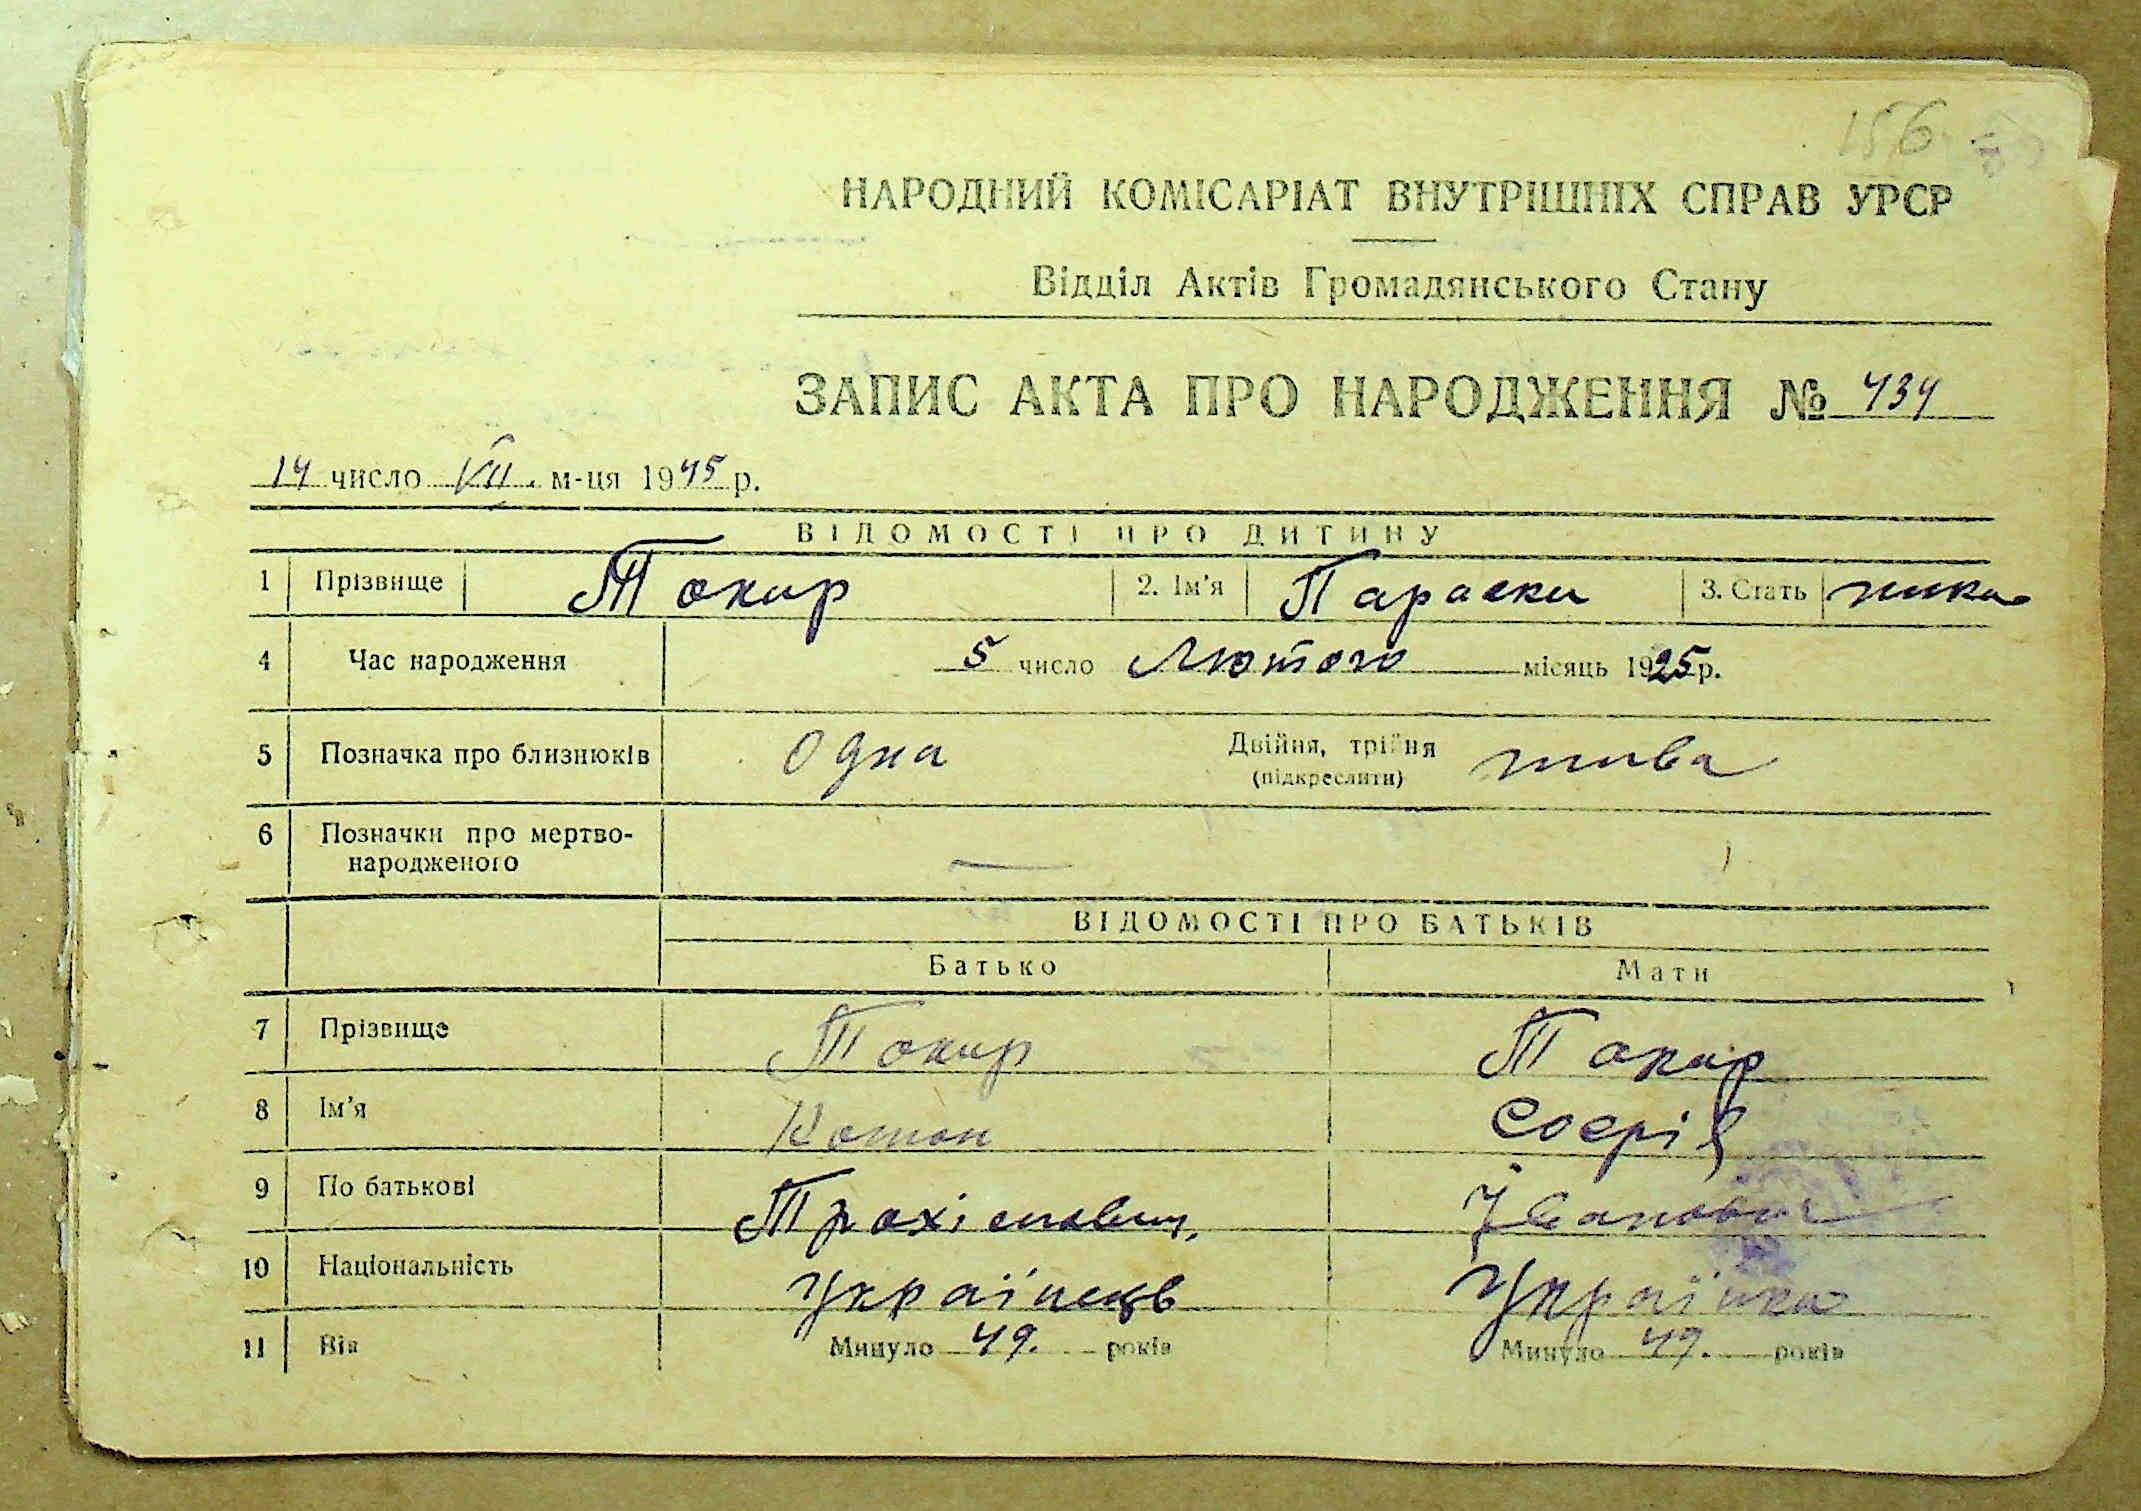 156
НАРОДНИЙ КОМІСАРІАТ ВНУТРІШНІХ СПРАВ УРСР
Відділ Актів Громадянського Стану
ЗАПИС АКТА ПРО НАРОДЖЕННЯ № 434
14 число VII. м-ця 1945 р.
ВІДОМОСТІ ПРО ДИТИНУ
1 Прізвище Токир 2. Ім'я Параски 3. Стать
4 Час народження 5 число Лютого місяць 1925 р.
5 Позначка про близнюків Одна Двійня, трійня (підкреслити) жива
6 Позначки про мертво-
народженого —
ВІДОМОСТІ ПРО БАТЬКІВ
Батько Мати
7 Прізвище Токир Токир
8 Ім'я Софія
9 По батькові Івановна
10 Національність Українець Українка
11 Вік Минуло 49. років Минуло 49. років